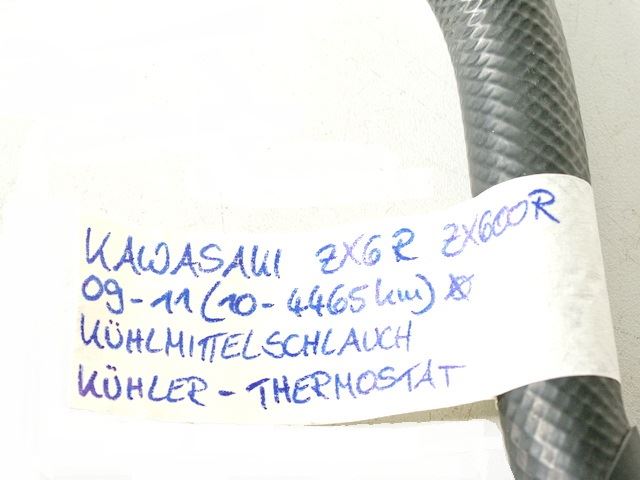 KAWASAKI ZX6R ZX600R
09-11 (10-4465km)
KÜHLMITTELSCHLAUCH
KÜHLER - THERMOSTAT